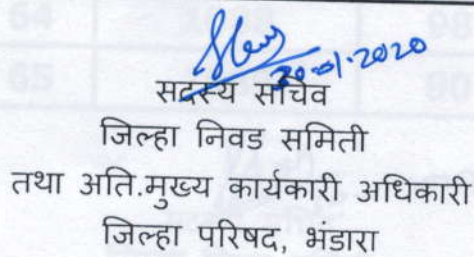 20.01.2020
सदस्य सचिव
जिल्हा निवड समिती
तथा अति.मुख्य कार्यकारी अधिकारी
जिल्हा परिषद, भंडारा